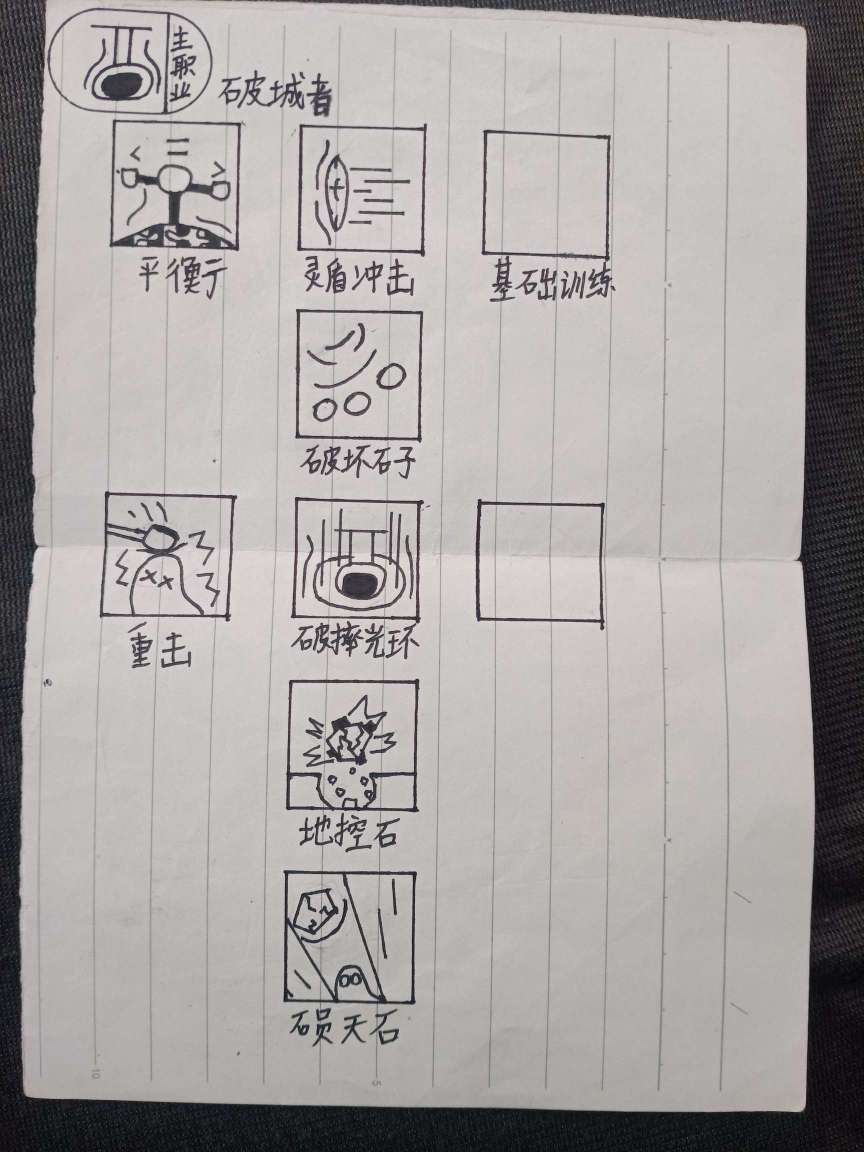 主职业
破城者
平衡亍
灵盾冲击
基础训练
破坏石子
重击
破摔光环
地控石
磒天石